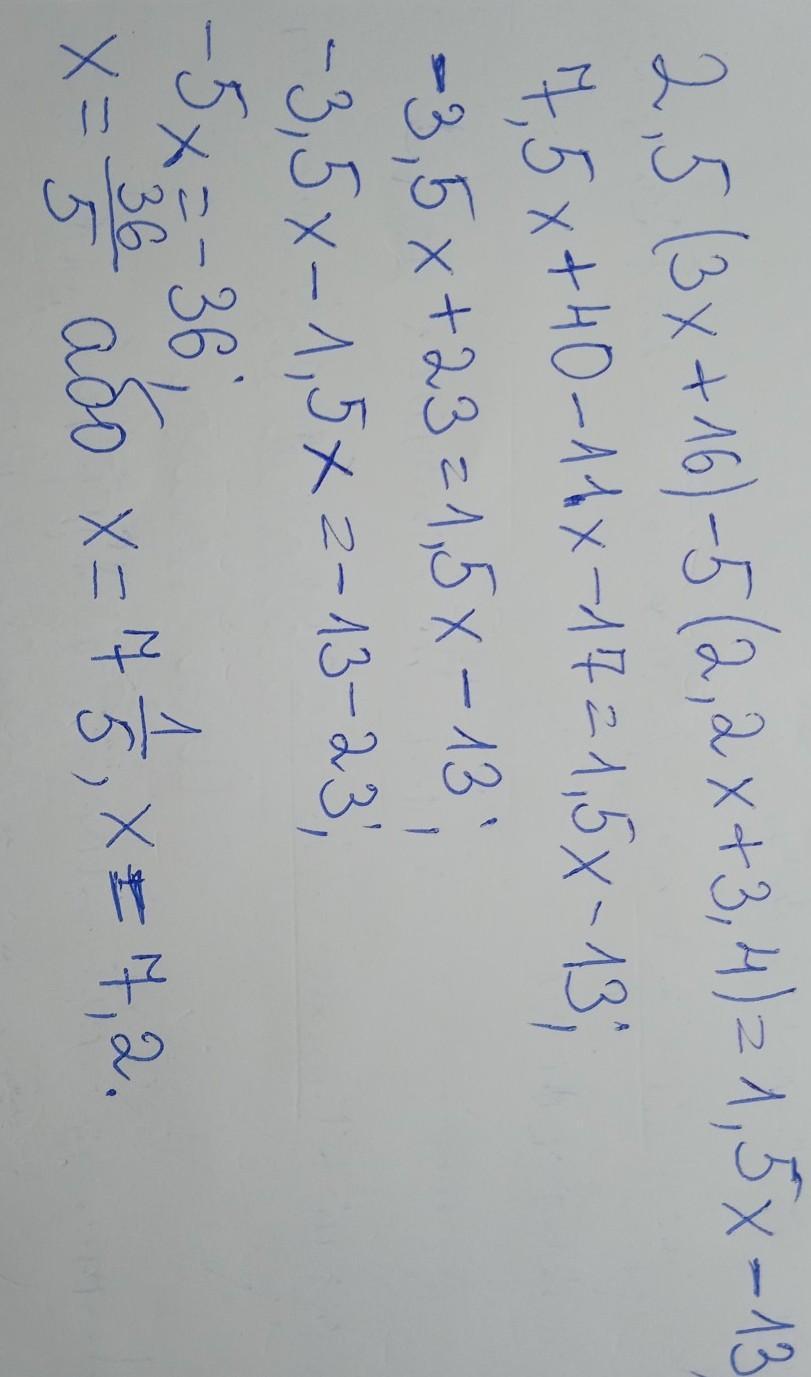 2,5(3x+16)-5(2,2x+3,4)=1,5x-13
7,5x+40-11x-17=1,5x-13;
-3,5x+23=1,5x-13;
-3,5x-1,5x=-13-23;
-5x=-36;
x=36/5 або x=7 1/5, x=7,2.